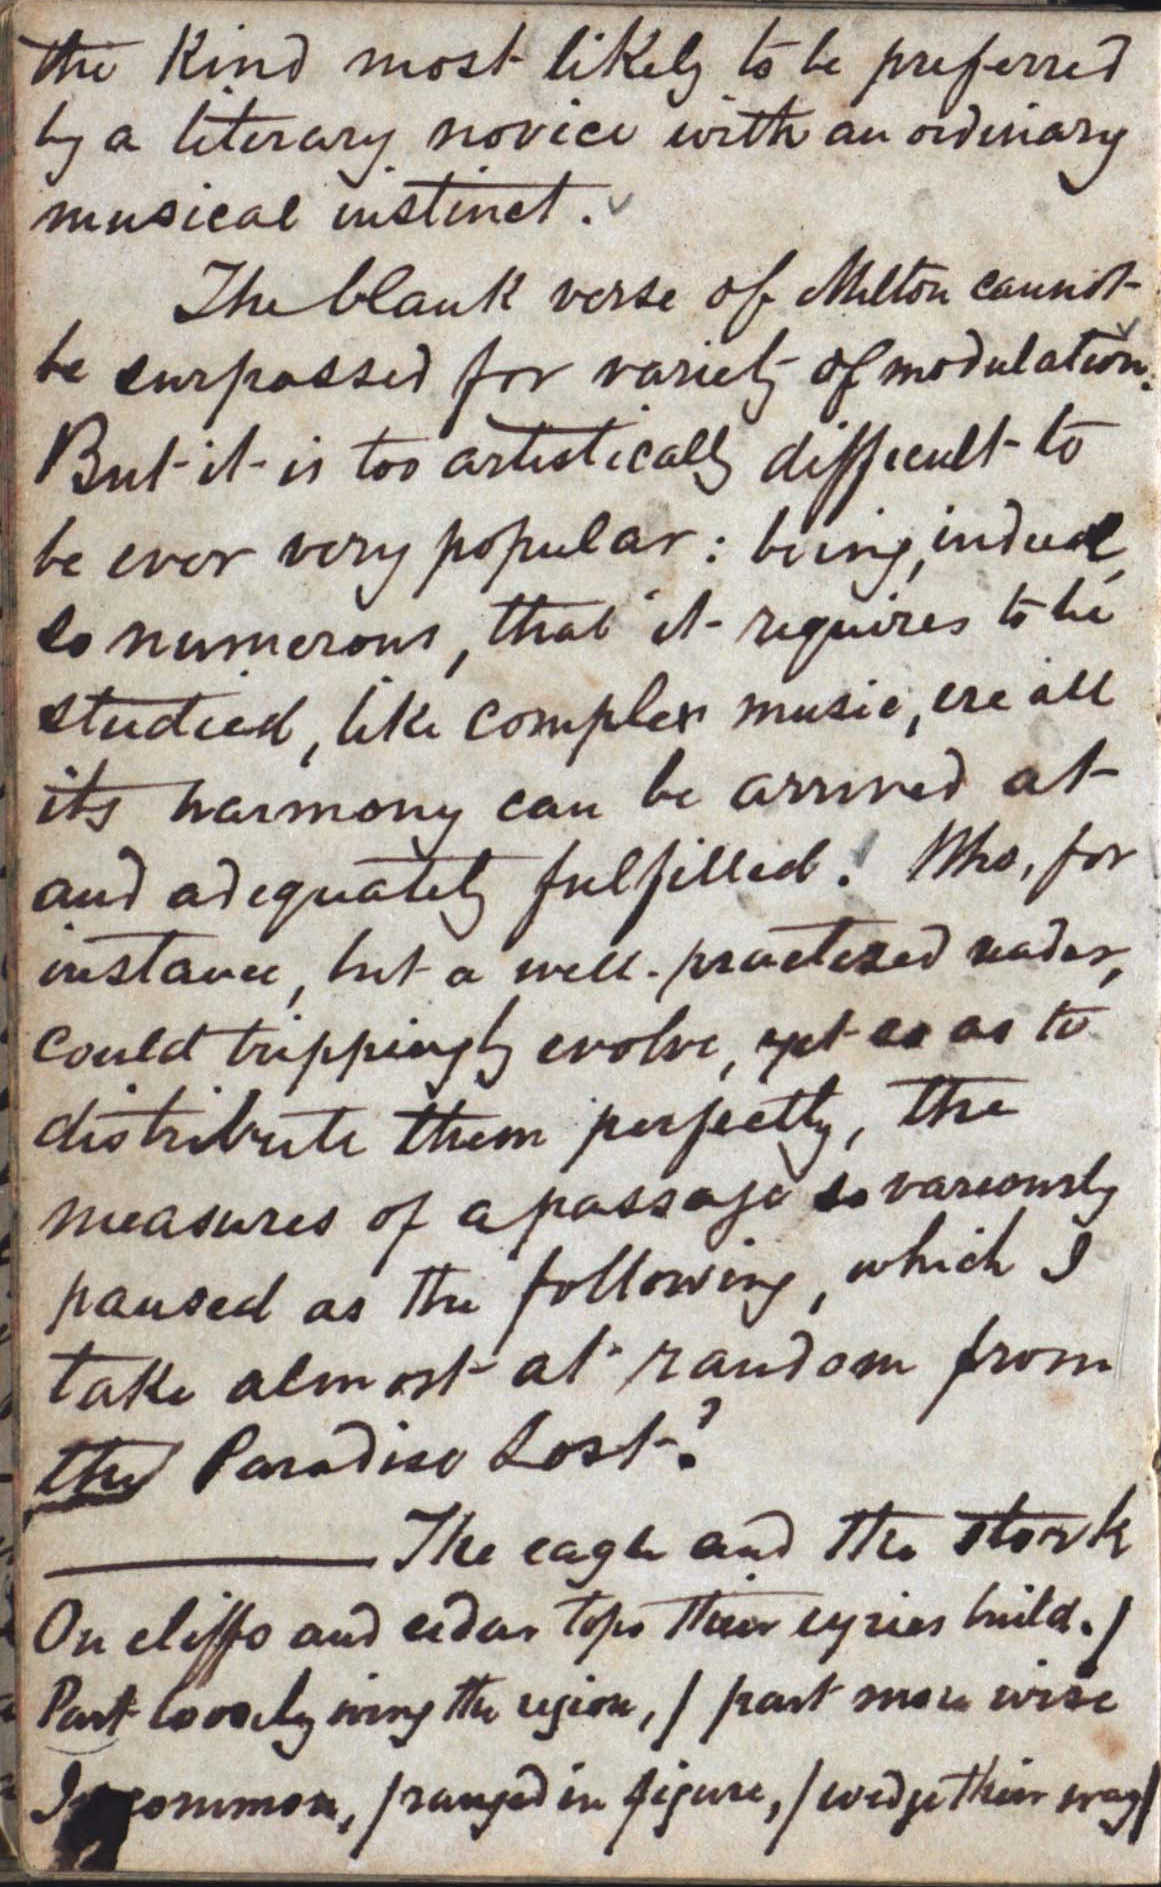 the Kind most likely to be preferred
by a literary novice with an ordinary
musical instinct.
The blank verse of Milton cannot
be surpassed for variety of modulation.
But it is too artistically difficult to
be ever very popular: being, indeed,
so numerous, that it requires to be
studied, like complex music, ere all
its harmony can be arrived at
and adequately fulfilled. Who, for
instance, but a well-practised reader,
could trippingly evolve, yet so as to
distribute them perfectly, the
measures of a passage so variously
paused as the following, which I
take almost at random from
the Paradise Lost?
The eagle and the stork
On cliffs and cedar tops their eyries build. /
Part loosely wing the region, / part more wise
In common, / ranged in figure, / wedge their way /